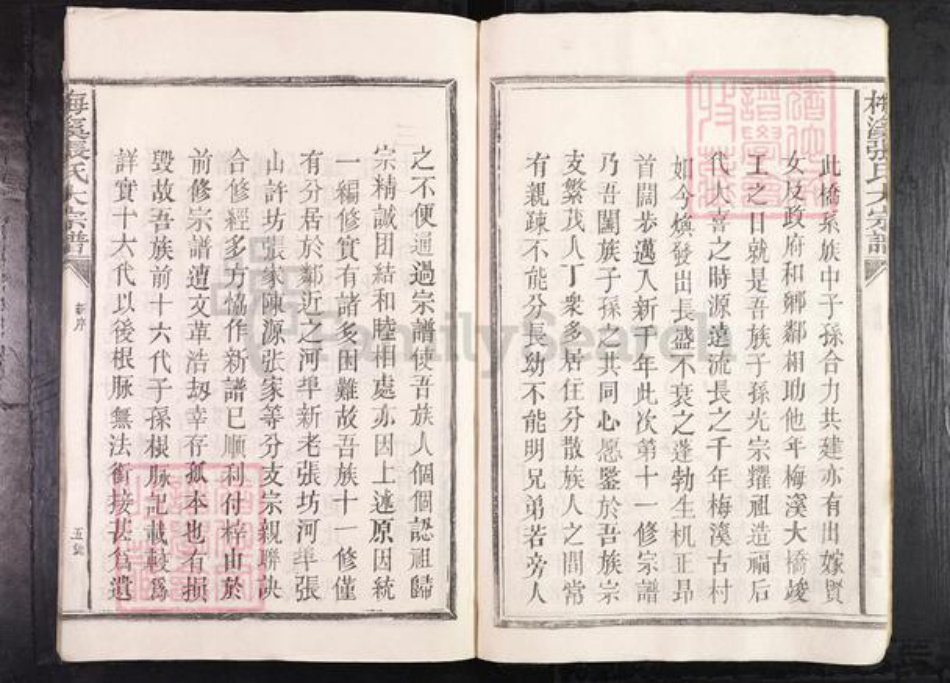 梅溪張氏大宗譜
此橋系族中子孫合力共建亦有出嫁賢
女及政府和鄉鄰相助他年梅溪大橋竣
工之日就是吾族子孫光宗耀祖造福后
代大喜之時源遠流長之千年梅溪古村
如今煥發出長盛不衰之蓬勃生机正昂
首闊步邁入新千年此次第十一修宗譜
乃吾闔族子孫之共同心愿鑒於吾族宗
支繁茂人丁衆多居住分散族人之間常
有親疎不能分長幼不能明兄弟若旁人
之不便通過宗譜使吾族人個個認祖歸
宗精誠团結和睦相處亦因上述原因統
一編修實有諸多困難故吾族十一修僅
有分居於鄰近之河垏新老張坊河垏張
山許坊張家陳源张家等分支宗親聯訣
合修經多方恊作新譜已順利付梓由於
前修宗譜遭文革浩刼幸存孤本也有損
毀故吾族前十六代子孫根脉記載較爲
詳實十六代以後根脉無法銜接甚爲遺
梅溪張氏大宗譜
新序
五
FamilySearch